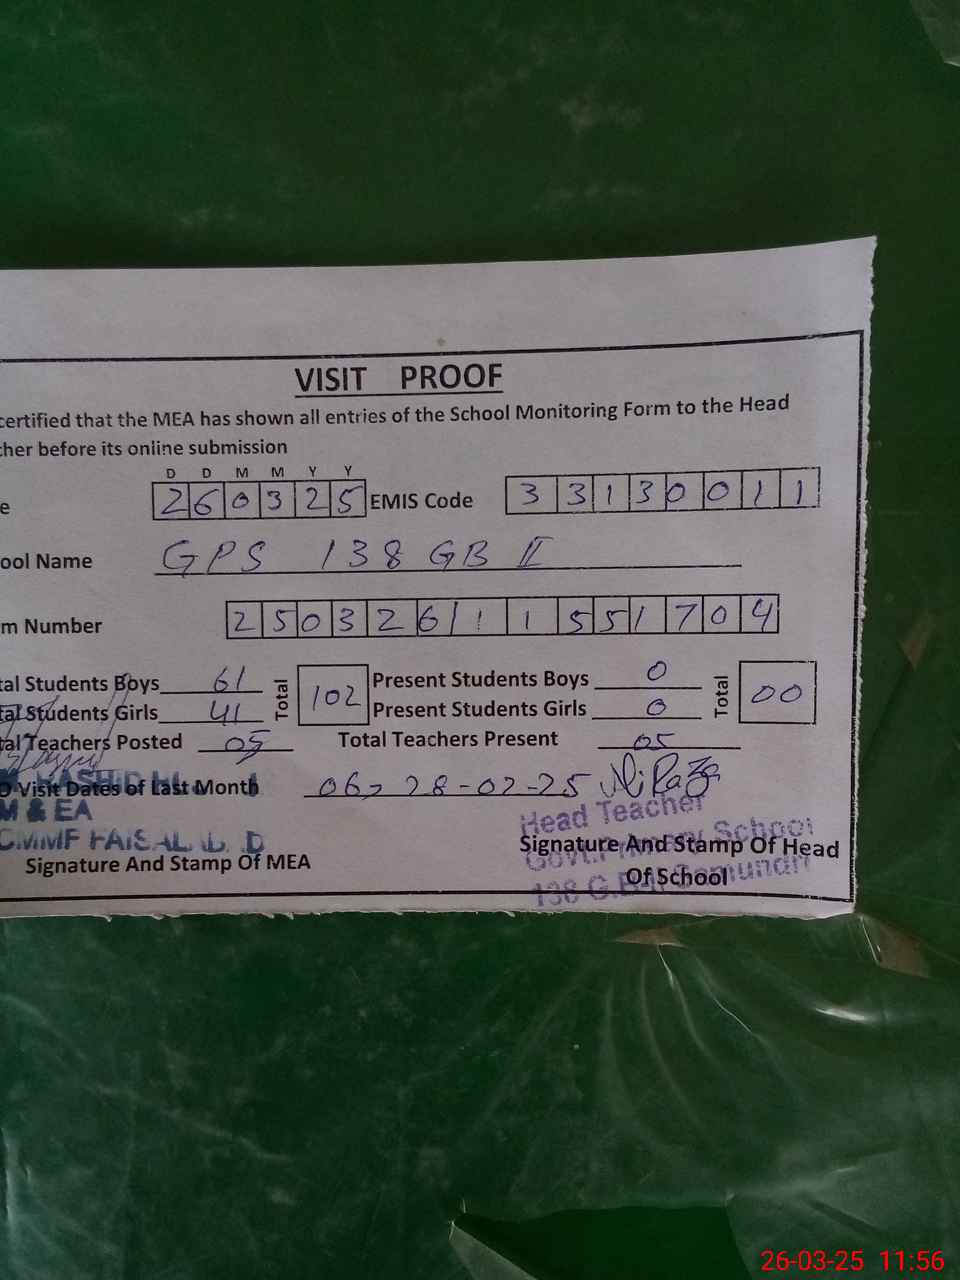 VISIT PROOF
certified that the MEA has shown all entries of the School Monitoring Form to the Head
cher before its online submission
D D M M Y Y
e 260325 EMIS Code 33130011
ool Name GPS 138 GB II
m Number 250326111551704
tal Students Boys 61 Total 102 Present Students Boys 0 Total 00
tal Students Girls 41 Present Students Girls 0
tal Teachers Posted 05 Total Teachers Present 05
O Visit Dates of Last Month 06, 28-02-25
M & EA
CMMF FAISAL
Signature And Stamp Of MEA
Head Teacher
Govt. Primary School
Signature And Stamp Of Head
Of School
26-03-25 11:56